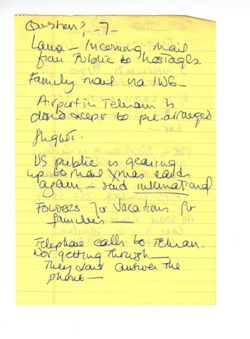 Questions, -7-
Lana - Incoming mail
from Public to hostages.
Family mail via IWG-
Airport in Tehran is
closed except to pre-arranged
flights.
US public is gearing
up to mail Xmas cards
again - said international
for vacations for
families
Telephone calls to Tehran.
Not getting through -
They don't answer the
phone -